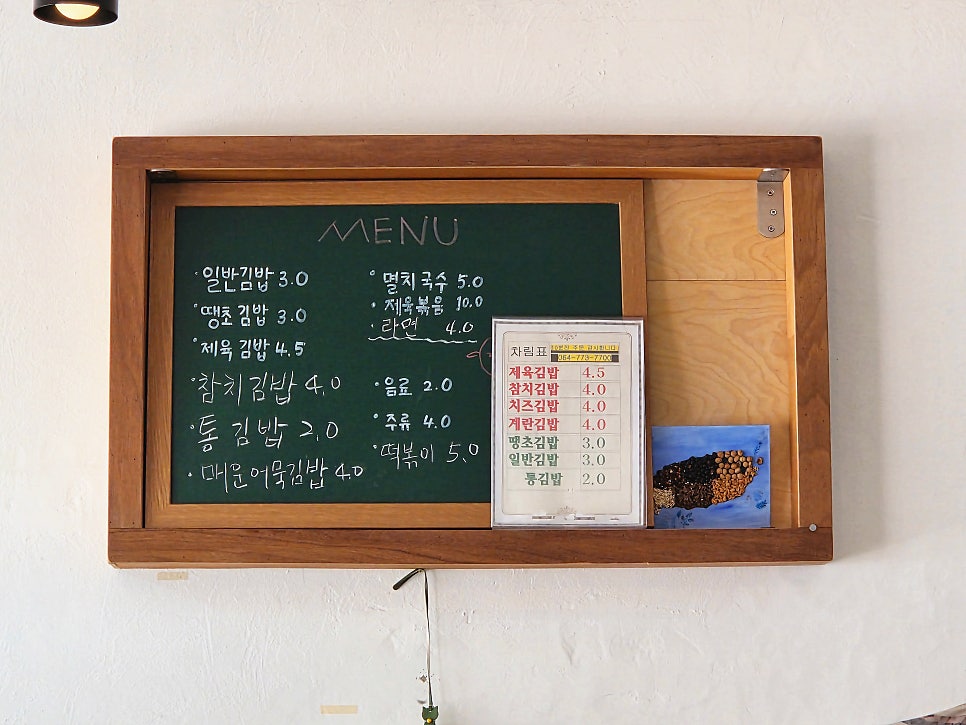 MENU
·일반김밥 3.0
·땡초김밥 3.0
·제육김밥 4.5
·참치김밥 4.0
·통김밥 2.0
·매운어묵김밥 4.0
·멸치국수 5.0
·제육볶음 10.0
·라면 4.0
·음료 2.0
·주류 4.0
·떡볶이 5.0
차림표
10분전 주문 감사합니다
064-773-7700
제육김밥 4.5
참치김밥 4.0
치즈김밥 4.0
계란김밥 4.0
땡초김밥 3.0
일반김밥 3.0
통김밥 2.0